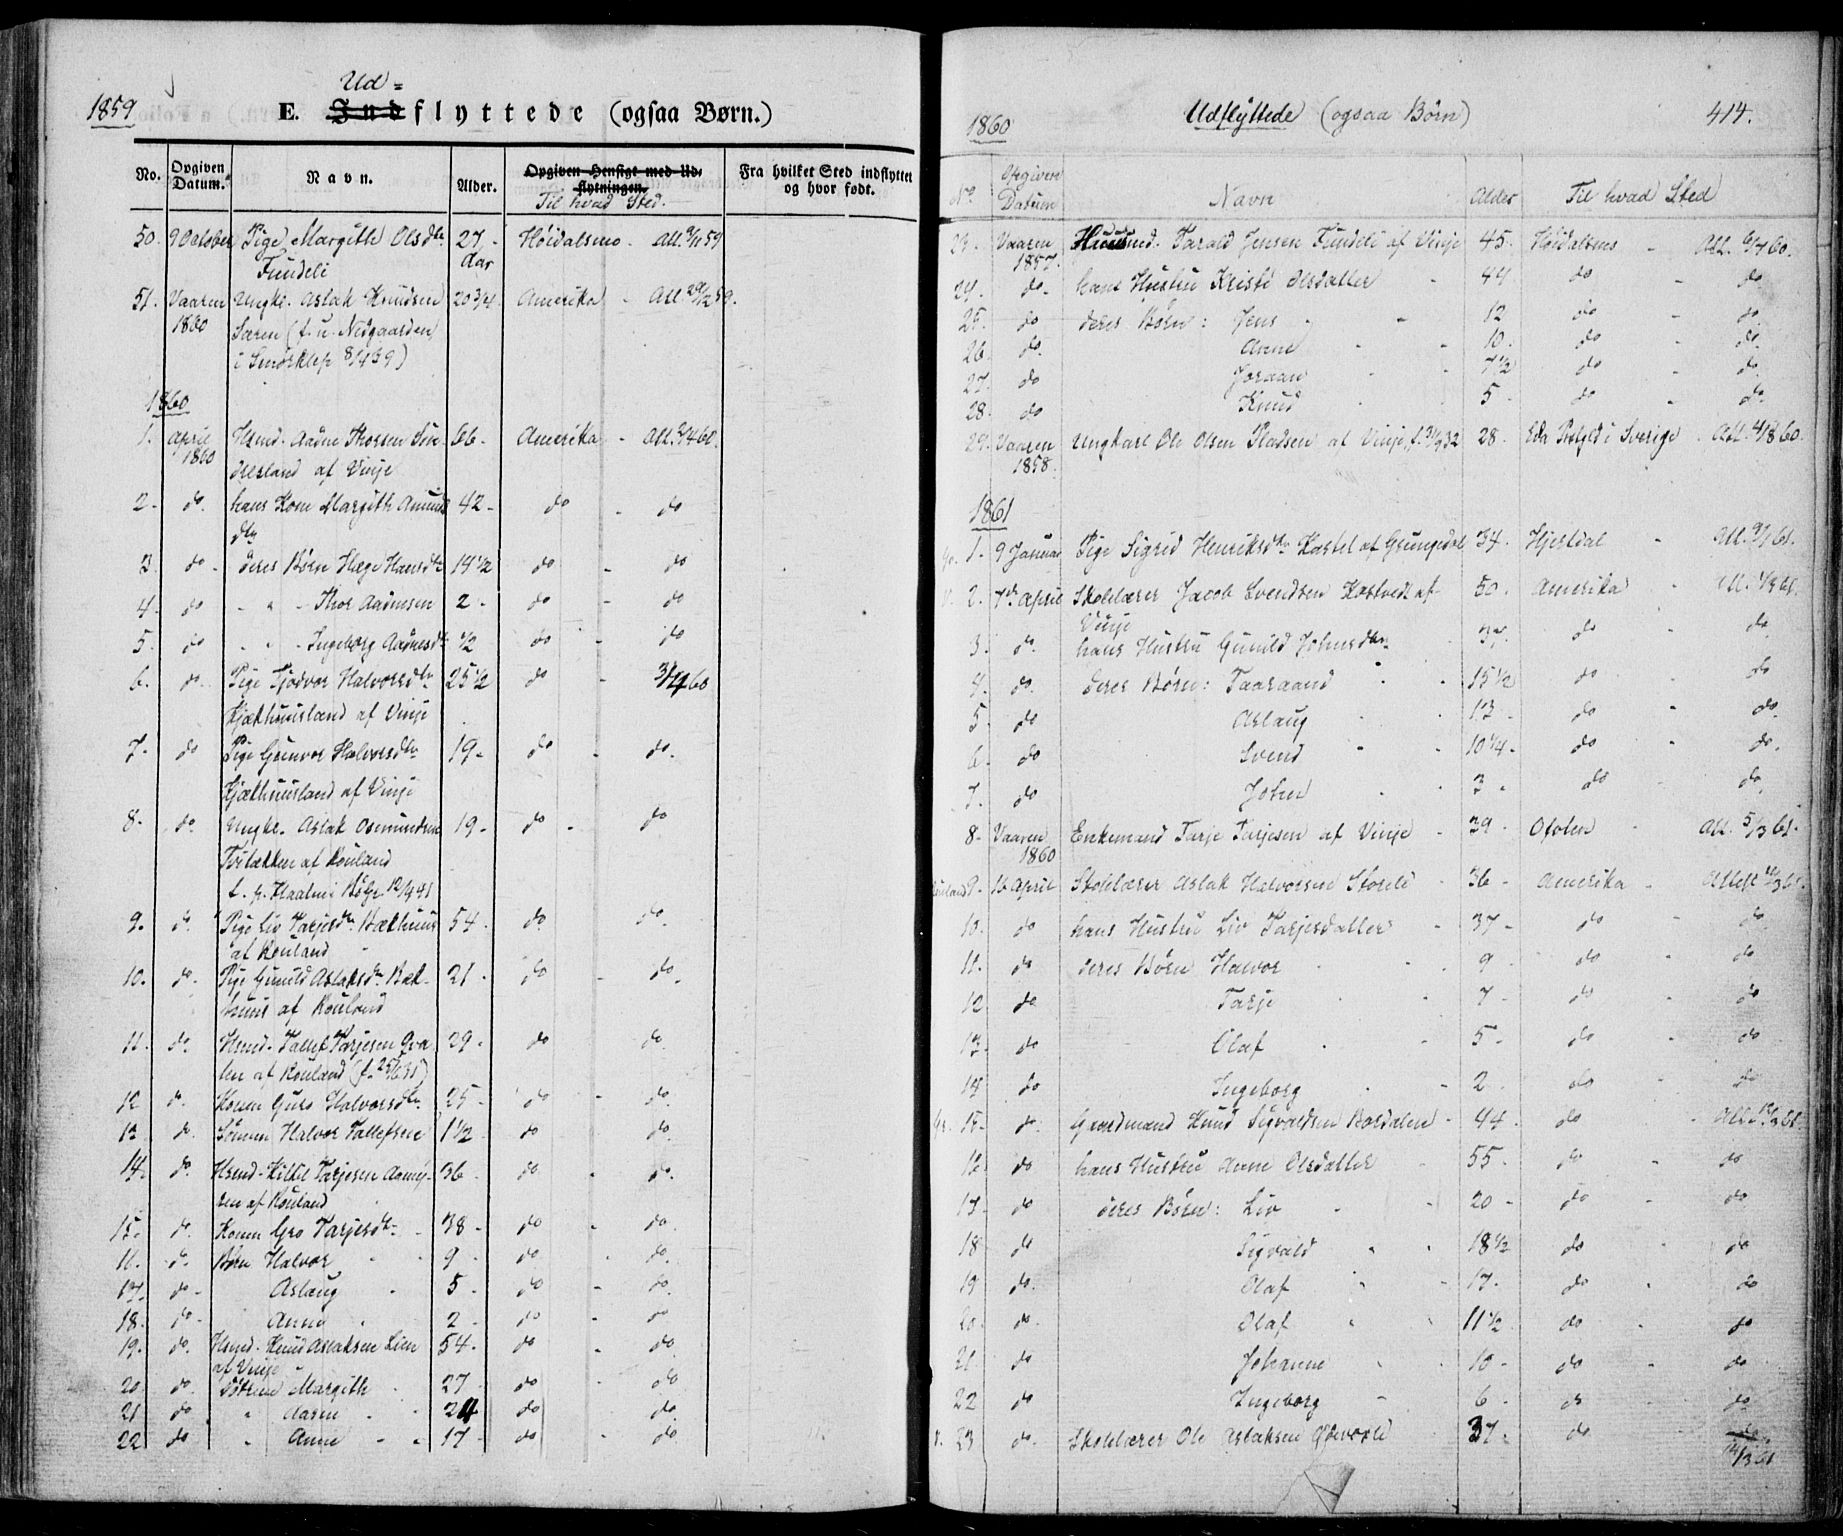 1859
Ud=
E. Indflyttede (ogsaa Børn.)
No. Opgiven Datum. Navn. Alder. Opgiven Hensigt med Udflytningen. Til hvad Sted. Fra hvilket Sted indflyttet og hvor født.
50. 9 October Pige Margith Olsdtr 27 Høidalsmo. Att. 9/11 59
Fundeli Aar
51. Vaaren Ungkl. Aslak Knudsen 20 3/4 Amerika - Att. 29/12 59.
1860 Særen (f. u. Nedgaarden
i Smørklep 8/4 39)
1860
1. April Hsmd. Aadne Thorsen Søn 66 - Amerika - Att. 2/4 60.
1860 dresland af Vinje
2 - do. hans Kone Margith Amunds 42 - do - do
dtr
3. do - deres Børn Hæge Hansdtr 14 1/2 do - do
4 - do - " - Thor Aadnesen 2 - do - do
5 do - " - Ingeborg Aadnesdtr 1/2 do - do
6. do. Pige Tjodvor Halvorsdtr 25 1/2 do - 3/4 60
Kjækhuusland af Vinje
7 - do Pige Gunvor Halvorsdtr 19 - do - do.
Kjækhuusland af Vinje
8 - do. Ungkl. Aslak Osmundsen 19 - do - do
af Rouland
9. do. Pige Liv Tarjesdtr Bækhuus 54 - do. do.
af Rouland
10. do. Pige Gunild Aslaksdtr Bæk- 21 - do - do.
huus af Rouland
11. do. Hsmd. Tallef Tarjesen Qva 29 - do do.
len af Rouland (f. 25/6 31)
12 do. Konen Guro Halvorsdtr 25 - do - do
13 do. Sønnen Halvor Tallefsen 1 1/2 do do
14. do. Hsmd. Kittil Tarjesen 36 - do do.
af Rouland
15. do. Konen Gro Tarjesdtr - 38 - do - do.
16. do. Børn Halvor - 9 - do - do.
17. do - Aslaug - 5 - do - do.
18. do - Anne - 2 - do - do
19. do. Hsmd. Knud Aslaksen Lien 54 - do - do.
af Vinje
20 do. Døttrene Margith - 27 do - do
21 do " Aasne - 24 do do.
22 do " Anne - 17 - do - do
1860
Udflyttede (ogsaa Børn)
414.
No Opgiven Datum Navn Alder Til hvad Sted
23. Vaaren Huusmd. Tarald Jensen Fundeli af Vinje 45 - Høidalsmo - Att. 6/4 60.
1857.
24. do - hans Hustru Kristi Olsdatter - 44 do - do
25. do deres Børn: Jens - 12 do - do
26. do. Anne - 10. do - do.
27. do Joraan - 7 1/2 do - do.
28. do Knud 5 - do - do.
29. Vaaren Ungkarl Ole Olsen Pladsen af Vinje, f. 3/9 32 28. Eda i Sverige - Att. 4/8 60.
1858.
1861
1. 9 Januar Pige Sigrid Henriksdtr af Grungedal 34. Hjertdal - Att. 9/1 61.
2. 7de April Skolelærer Jacob Svendsen af 50. Amerika - Att. 61.
Vinje
3. do. hans Hustru Gunild Johnsdtr 37. do - do.
4. do. deres Børn: Taaraand - 15 1/2 do - do
5 do Aslaug - 13 - do - do.
6 - do Svend - 10 1/4 - do - do.
7. do John - 3 - do - do.
8 - Vaaren Enkemand Tarje Tarjesen af Vinje - 39 - Ofoten - Att. 5/3 61.
1860
Rouland 9 - 16 April Skolelærer Aslak Halvorsen - 36 - Amerika - Attest 61.
10. do hans Hustru Liv Tarjesdatter - 37 - do - do
11. do deres Børn Halvor - 9 - do - do
12 do Tarje - 7 - do - do
13 - do Olaf - 5 - do - do
14 do Ingeborg - 2 - do - do
15 - do. Gaardmand Knud Sigvaldsen Bordalen - 44 - do - Att. 61.
16 do hans Hustru Anne Olsdatter - 55 - do - do
17 - do deres Børn: Liv - 20 - do - do
18 do Sigvald - 18 1/2 do - do
19 do. Olaf - 17 - do - do
20 - do. Olaf - 11 1/2 do - do
21 do Johanne - 10 - do - do
22 do Ingeborg - 6 - do - do
23 do. Skolelærer Ole Aslaksen 37 - do - do
14/3 61